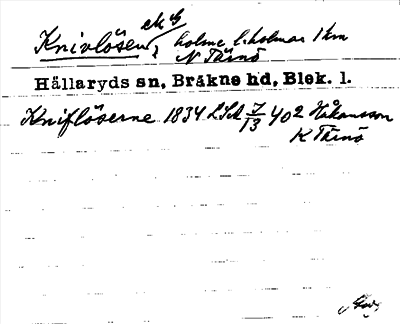 Knivlösen, holme l. holmar 1 km
N Tärnö
Hällaryds sn, Bräkne hd, Blek. l.
Kniflöserne 1834 LSA 7/13 402 Håkansson
K Tärnö